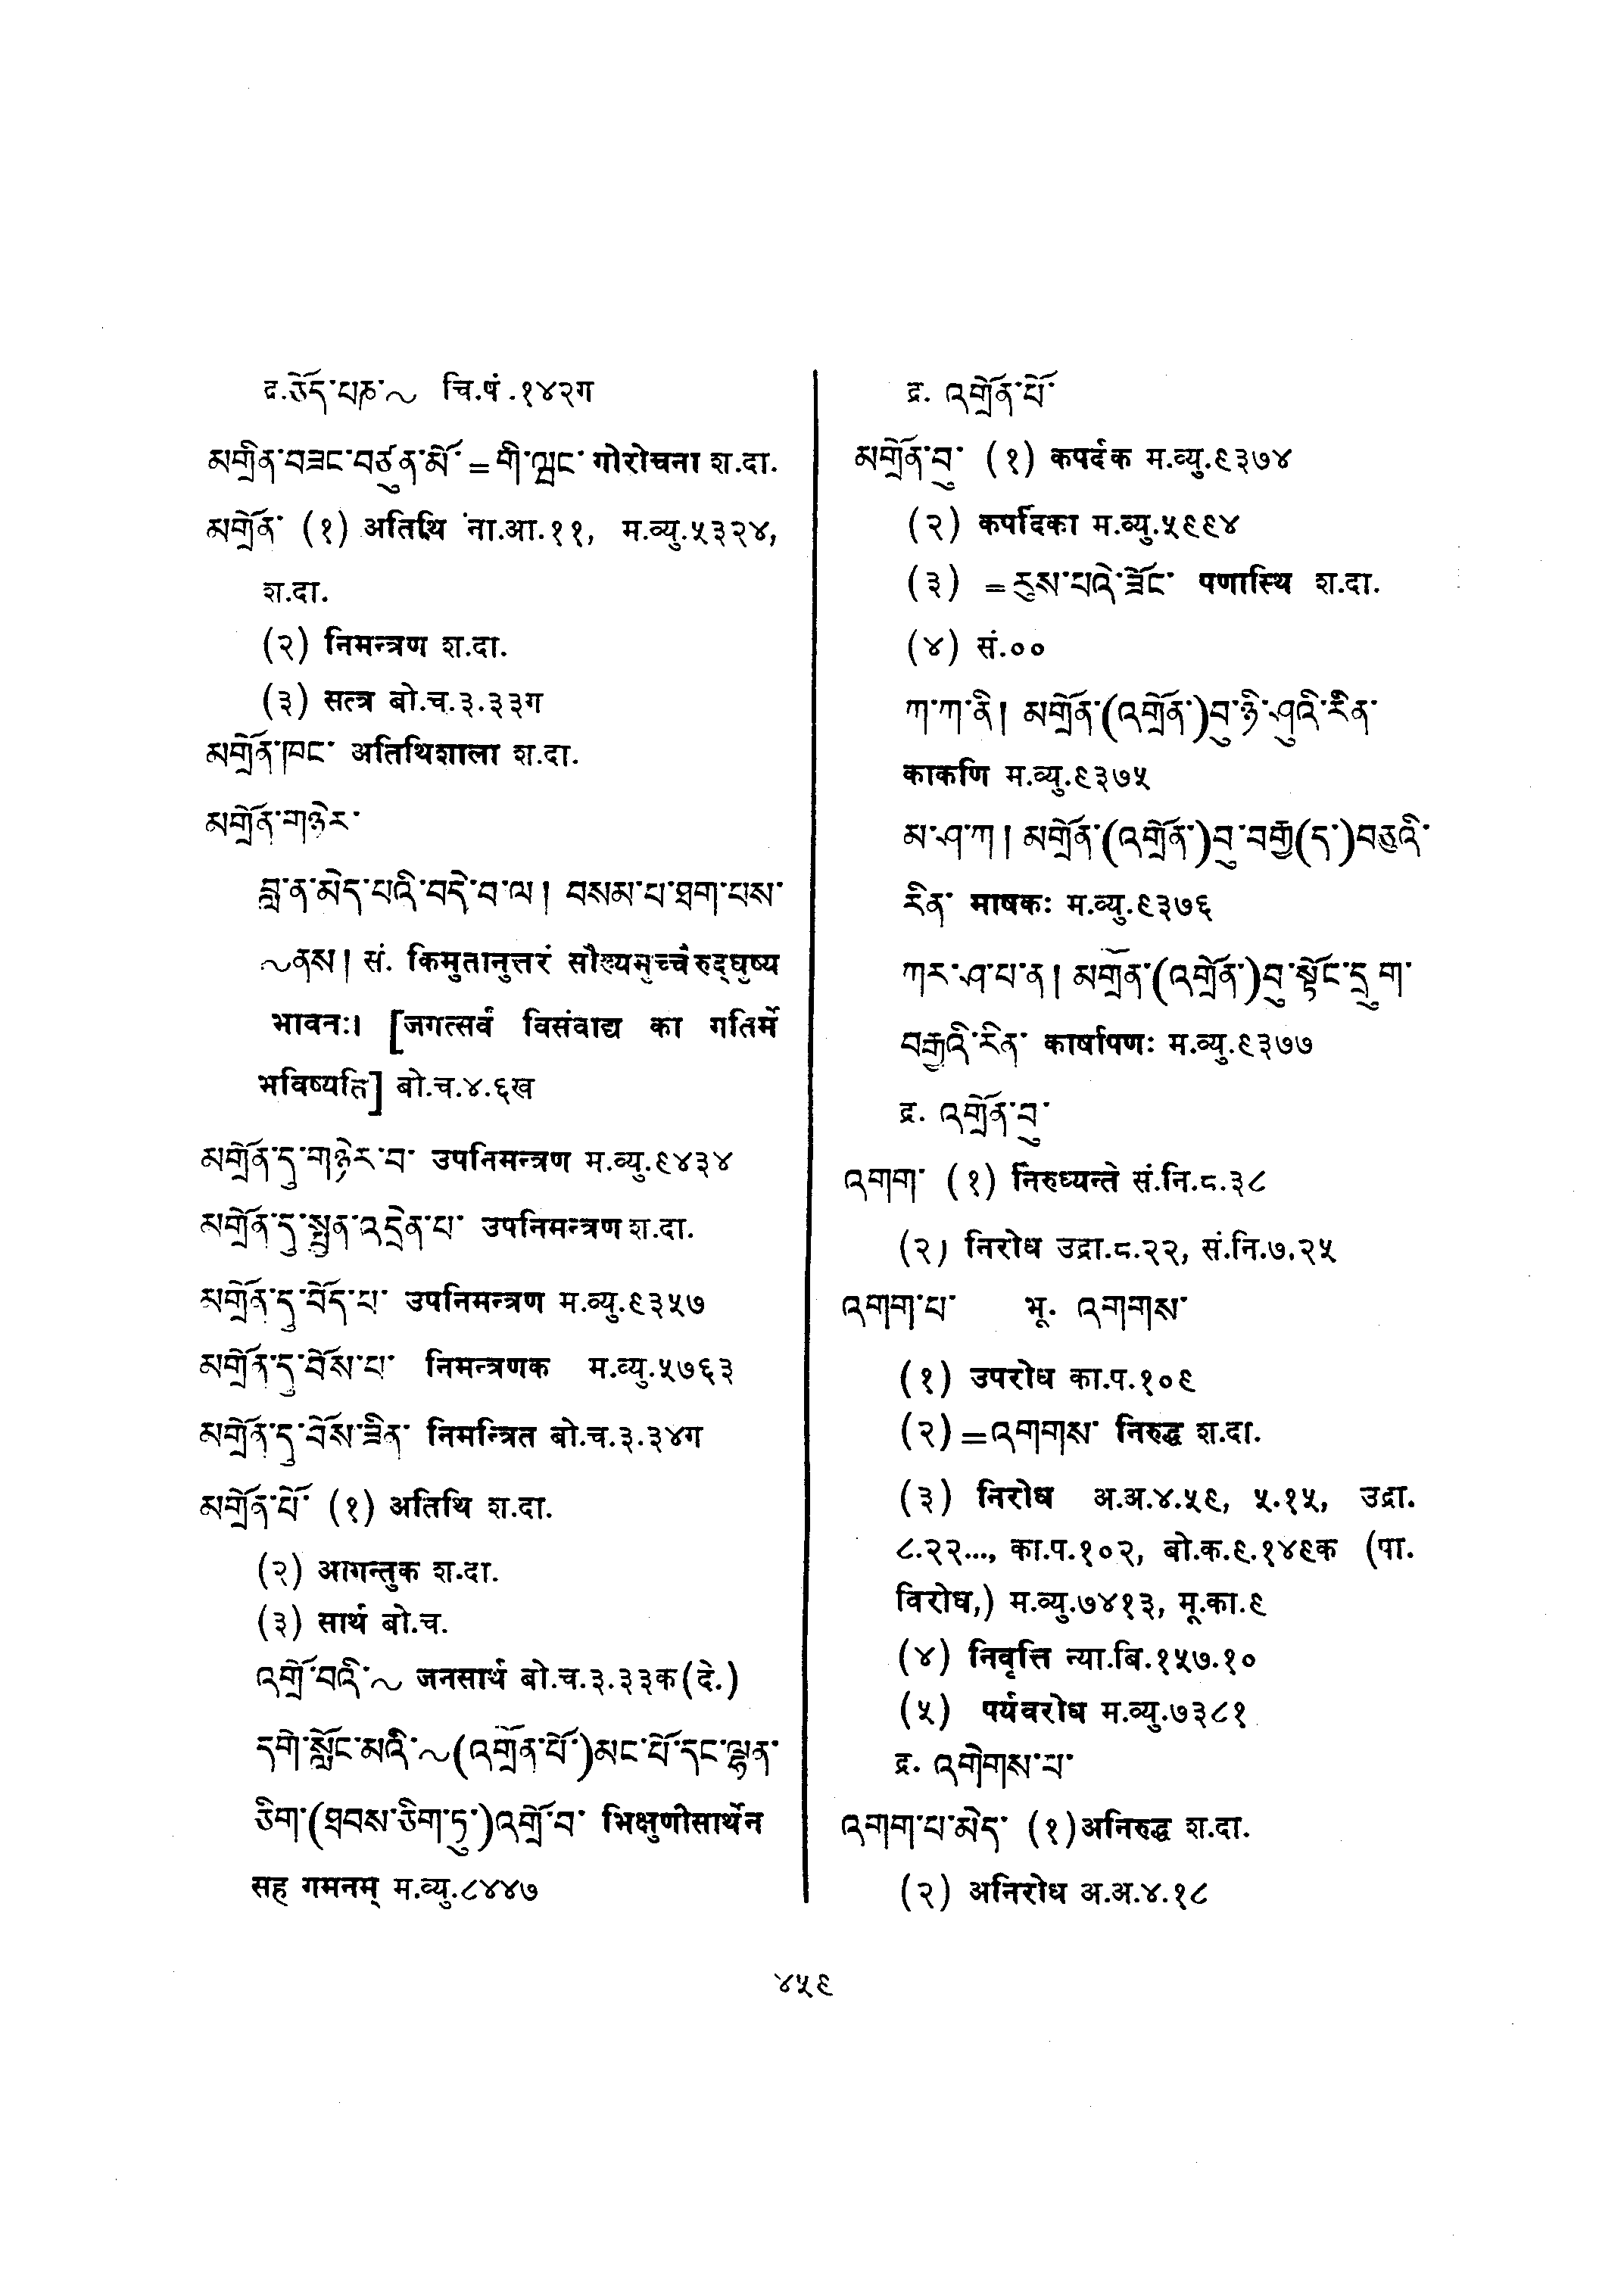 द्र.ཙོད་པཎ་~ चि.षं.१४२ग
མགྲིན་བཟང་བཙུན་མོ་ = གི་ཝང་ गोरोचना श.दा.
མགྲོན་ (१) अतिथि ना.आ.११, म.व्यु.५३२४,
श.दा.
(२) निमन्त्रण श.दा.
(३) सत्त्र बो.च.३.३३ग
མགྲོན་ཁང་ अतिथिशाला श.दा.
མགྲོན་གཉེར་
བླ་ན་མེད་པའི་བདེ་བ་ལ། བསམ་པ་ཐག་པས་
~ནས། सं. किमुतानुत्तरं सौख्यमुच्चैरुद्घुष्य
भावनः। [जगत्सर्वं विसंवाद्य का गतिर्मे
भविष्यति] बो.च.४.६ख
མགྲོན་དུ་གཉེར་བ་ उपनिमन्त्रण म.व्यु.९४३४
མགྲོན་དུ་སྤྱན་འདྲེན་པ་ उपनिमन्त्रण श.दा.
མགྲོན་དུ་བོད་པ་ उपनिमन्त्रण म.व्यु.९३५७
མགྲོན་དུ་བོས་པ་ निमन्त्रणक म.व्यु.५७६३
མགྲོན་དུ་བོས་ཟིན་ निमन्त्रित बो.च.३.३४ग
མགྲོན་པོ་ (१) अतिथि श.दा.
(२) आगन्तुक श.दा.
(३) सार्थ बो.च.
འགྲོ་བའི་~ जनसार्थ बो.च.३.३३क(दे.)
དགེ་སློང་མའི་~(འགྲོན་པོ་)མང་པོ་དང་ལྷན་
ཅིག་(ཐབས་ཅིག་ཏུ་)འགྲོ་བ་ भिक्षुणीसार्थेन
सह गमनम् म.व्यु.८४४७
द्र. འགྲོན་པོ་
མགྲོན་བུ་ (१) कपर्दक म.व्यु.९३७४
(२) कर्पादका म.व्यु.५९९४
(३) =རུས་པའེ་ཟོང་ पणास्थि श.दा.
(४) सं.००
ཀ་ཀ་ནི། མགྲོན་(འགྲོན་)བུ་ཉི་ཤུའི་རིན་
काकणि म.व्यु.९३७५
མ་ཤ་ཀ། མགྲོན་(འགྲོན་)བུ་བརྒྱ(ད་)བཅུའི་
རིན་ माषकः म.व्यु.९३७६
ཀར་ཤ་པ་ན། མགྲོན་(འགྲོན་)བུ་སྟོང་དྲུག་
བརྒྱའི་རིན་ कार्षापणः म.व्यु.९३७७
द्र. འགྲོན་བུ་
འགག་ (१) निरुध्यन्ते सं.नि.८.३८
(२) निरोध उद्रा.८.२२, सं.नि.७.२५
འགག་པ་ भू. འགགས་
(१) उपरोध का.प.१०९
(२)=འགགས་ निरुद्ध श.दा.
(३) निरोध अ.अ.४.५९, ५.१५, उद्रा.
८.२२..., का.प.१०२, बो.क.९.१४९क (पा.
विरोध,) म.व्यु.७४१३, मू.का.९
(४) निवृत्ति न्या.बि.१५७.१०
(५) पर्यवरोध म.व्यु.७३८१
द्र. འགེགས་པ་
འགག་པ་མེད་ (१)अनिरुद्ध श.दा.
(२) अनिरोध अ.अ.४.१८
४५९